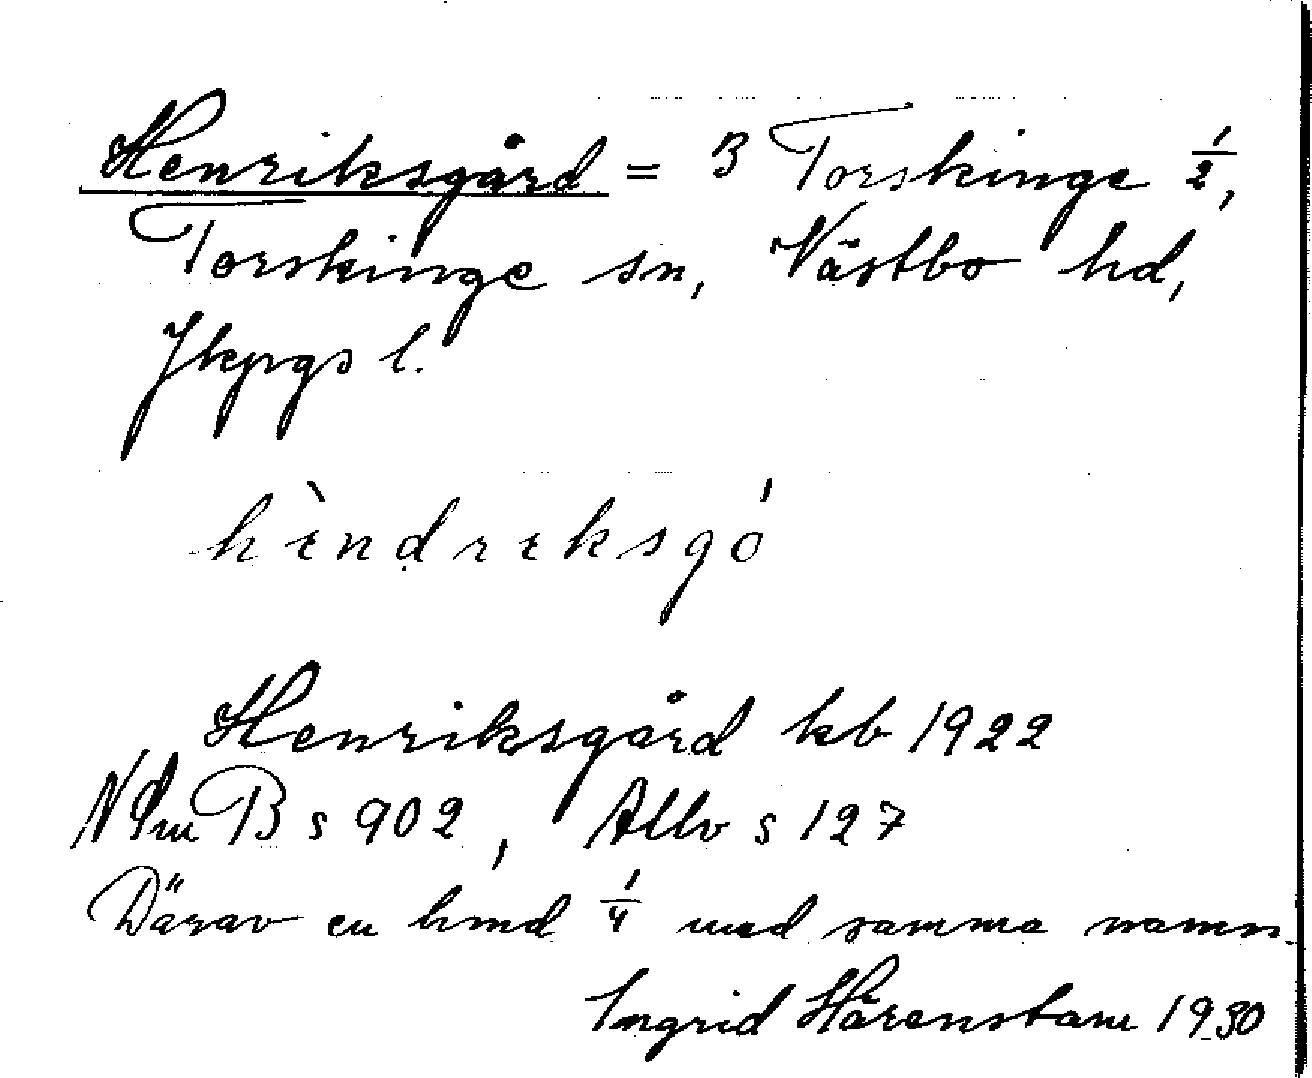 Henriksgård = B Torskinge 1/2,
Torskinge sn, Västbo hd,
Jkpgs l.
hìndriksgó
Henriksgård kb 1922
NSm B s 902, Allv s 127
Därav en hmd 1/4 med samma namn.
Ingrid Härenstam 1930